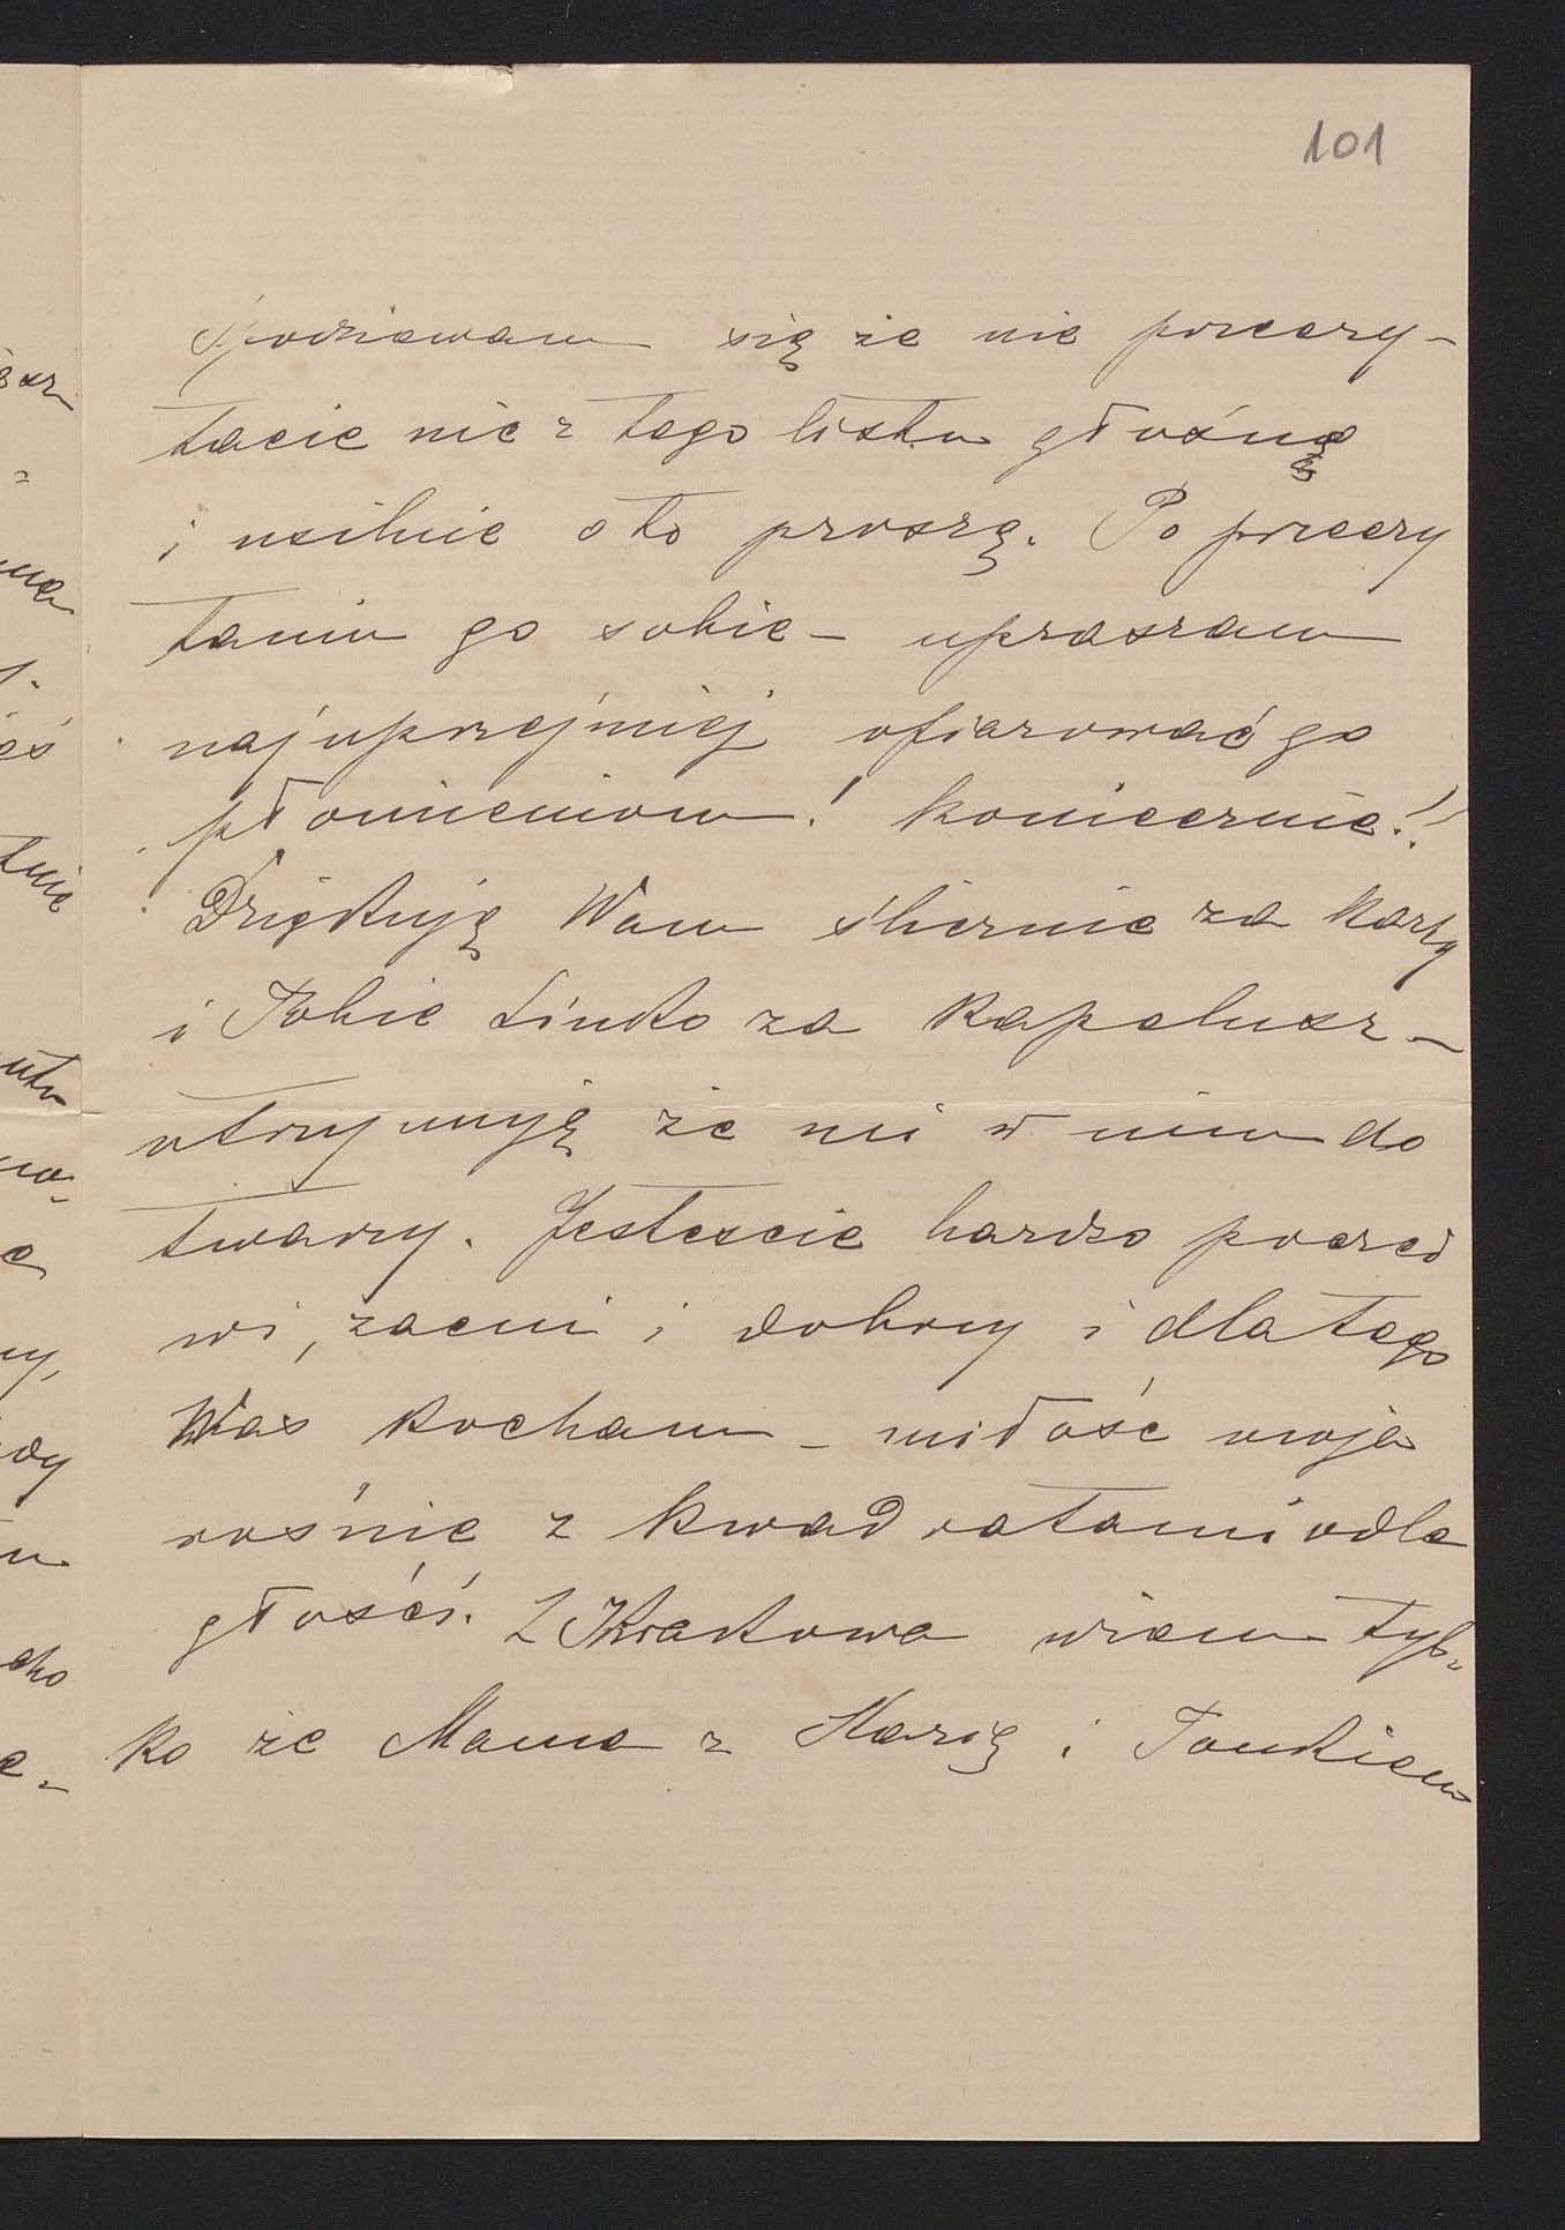 101
Spodziewam się że nie przeczy-
tacie nic z tego listu głośno
i usilnie o to proszę. Po przeczy
taniu go sobie - upraszam
najuprzejmiej ofiarować go
płomieniom! koniecznie!!
Dziękuję Wam ślicznie za karty
i Tobie Linko za kapelusz -
utrzymuję że mi w nim do
twarzy. Jesteście bardzo poczci
wi, zacni i dobrzy i dla tego
Was kocham - miłość moja
rośnie z kwadratami odle
głości. Z Krakowa wiem tyl-
ko że Mama z Marią i Tonkiem